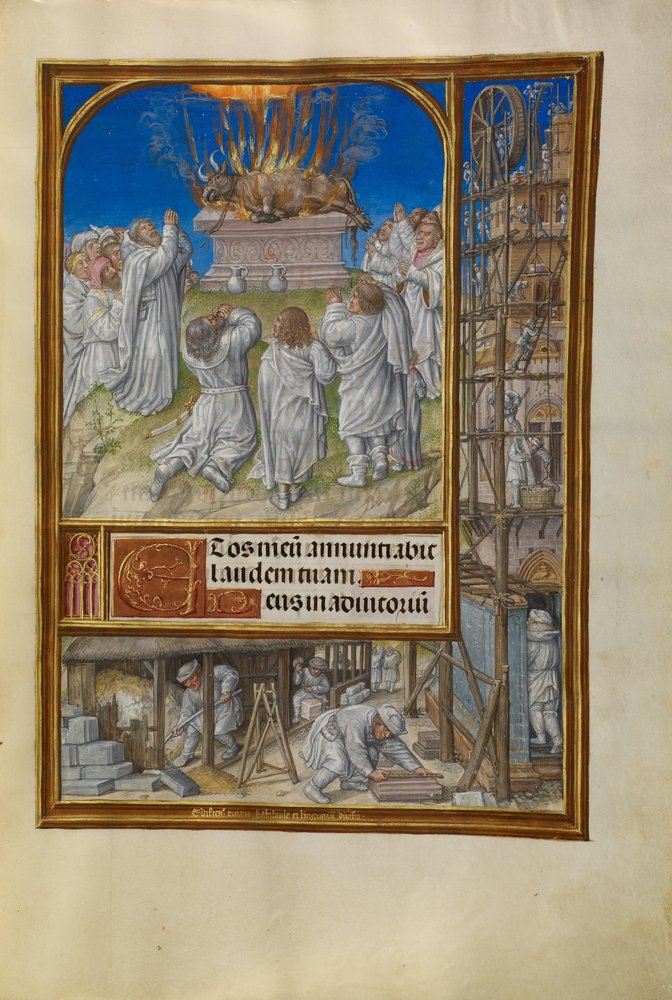 Et os meū annuntiabit
laudem tuam.
Deus in adiutoriū
Edificat turris babilonie et linguarū diuisio.